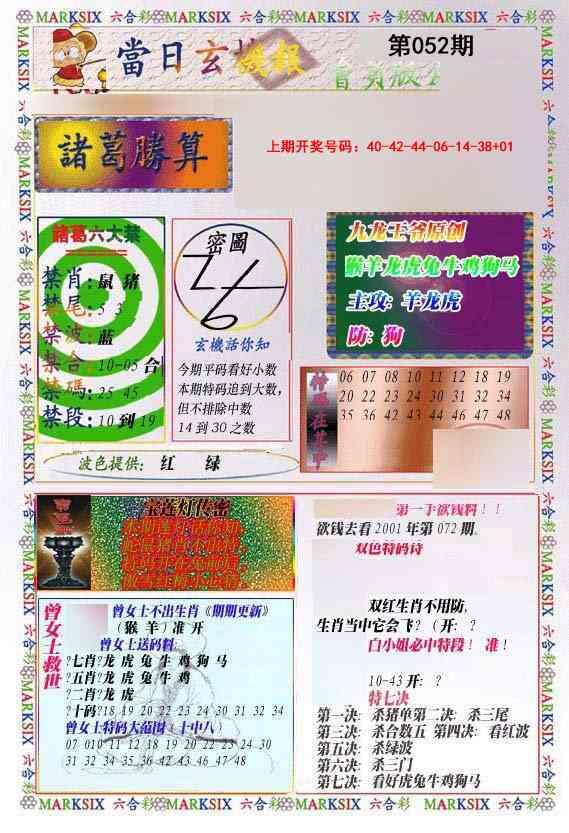 MARKSIX 六合彩 MARKSIX 六合彩 MARKSIX 六合彩 MARKSIX 六合彩
當日玄機報
第052期
諸葛勝算
上期开奖号码：40-42-44-06-14-38+01
諸葛六大禁
禁肖：鼠 猪
禁尾：5 3
禁波：蓝
禁合：10-05 合
禁碼：25 45
禁段：10 到 19
密圖
玄機話你知
今期平码看好小数
本期特码追到大数，
但不排除中数
14 到 30 之数
九龙王爷原创
猴羊龙虎兔牛鸡狗马
主攻: 羊龙虎
防: 狗
特码在其中
06 07 08 10 11 12 18 19
20 22 23 24 30 31 32 34
35 36 42 43 44 46 47 48
波色提供: 红 绿
宝莲灯传密
曾女士救世
曾女士不出生肖《期期更新》
（猴 羊）准 开
曾女士送码料:
?七肖?龙 虎 兔 牛 鸡 狗 马
?五肖?龙 虎 兔 牛 鸡
?二肖?龙 虎
?十码?18 19 20 22 23 24 30 31 32 34
曾女士特码大范围（十中八）
07 010 11 12 18 19 20 22 23 24 30
31 32 34 35 36 42 43 46 47 48
第一手欲钱料！！
欲钱去看 2001 年第 072 期。
双色特码诗
双红生肖不用防，
生肖当中它会飞？（开: ？
白小姐必中特段！ 准！
10-43 开: ？
特七决
第一决: 杀猪单第二决: 杀三尾
第三决: 杀合数五 第四决: 看红波
第五决: 杀绿波
第六决: 杀三门
第七决: 看好虎兔牛鸡狗马
MARKSIX 六合彩 MARKSIX 六合彩 MARKSIX 六合彩 MARKSIX 六合彩